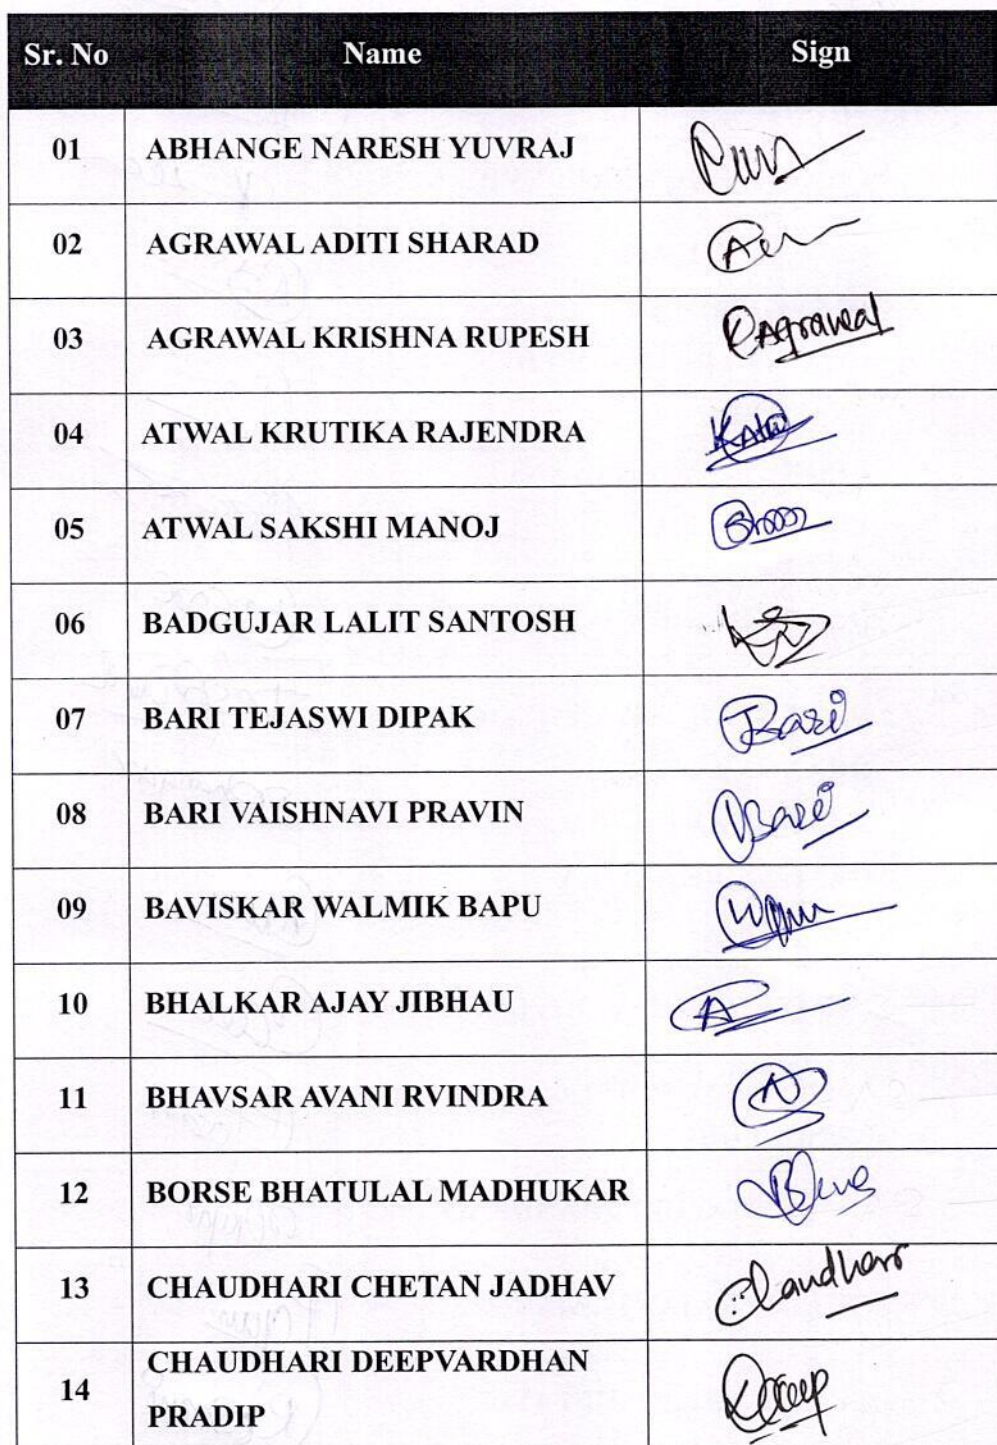 Sr. No Name Sign
01 ABHANGE NARESH YUVRAJ
02 AGRAWAL ADITI SHARAD
03 AGRAWAL KRISHNA RUPESH Agrawal
04 ATWAL KRUTIKA RAJENDRA
05 ATWAL SAKSHI MANOJ
06 BADGUJAR LALIT SANTOSH
07 BARI TEJASWI DIPAK TBari
08 BARI VAISHNAVI PRAVIN VBari
09 BAVISKAR WALMIK BAPU
10 BHALKAR AJAY JIBHAU A
11 BHAVSAR AVANI RVINDRA A
12 BORSE BHATULAL MADHUKAR
13 CHAUDHARI CHETAN JADHAV Chaudhari
CHAUDHARI DEEPVARDHAN
14 Deep
PRADIP